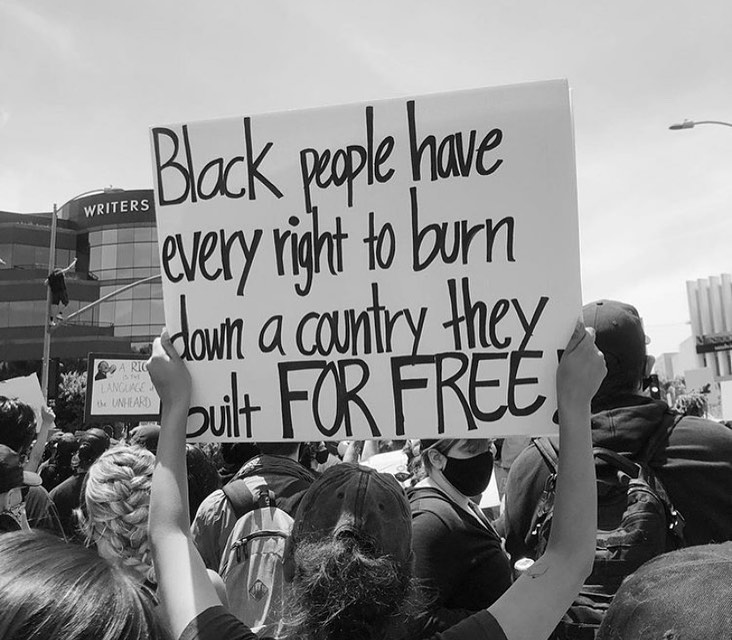 WRITERS
Black people have
every right to burn
down a country they
built FOR FREE!
A RIOT
IS THE
LANGUAGE OF
THE UNHEARD